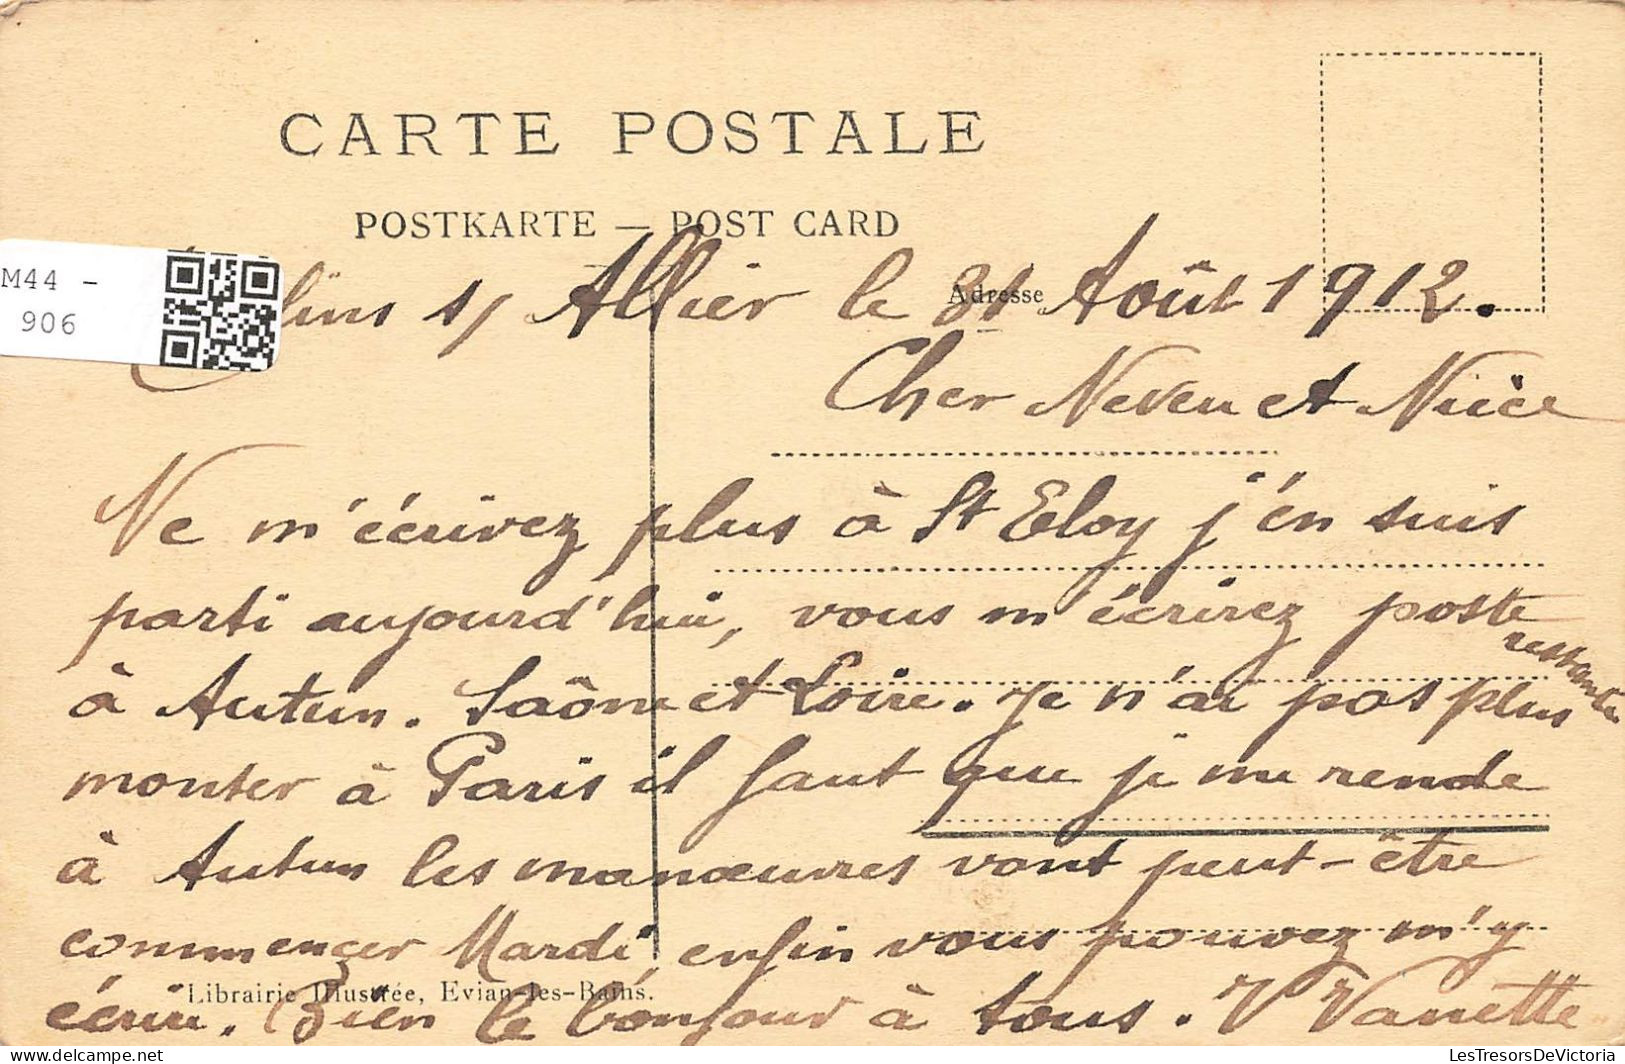 CARTE POSTALE
POSTKARTE — POST CARD
M44 -
906
lins s/ Allier le 31 Août 1912.
Adresse
Cher Neveu et Nièce
Ne m'écrivez plus à St Eloy j'en suis
parti aujourd'hui, vous m'écrirez poste
restante
à Autun. Saône et Loire. Je n'ai pas plus
monter à Paris il faut que je me rende
à Autun les manœuvres vont peut-être
commençer Mardi, enfin vous pouvez m'y
Librairie Illustrée, Evian-les-Bains.
écrire. Bien le bonjour à tous. V Vanette
delcampe.net
LesTresorsDeVictoria